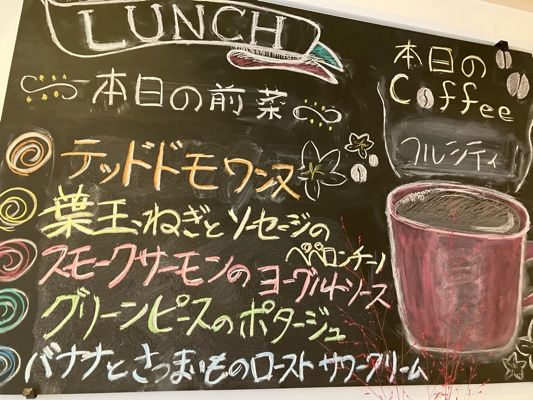 LUNCH
本日の前菜
テッドドモワンヌ
葉玉ねぎとソーセージの
ペペロンチーノ
スモークサーモンのヨーグルトソース
グリーンピースのポタージュ
バナナとさつまいものロースト サワークリーム
本日の
Coffee
フルシティ